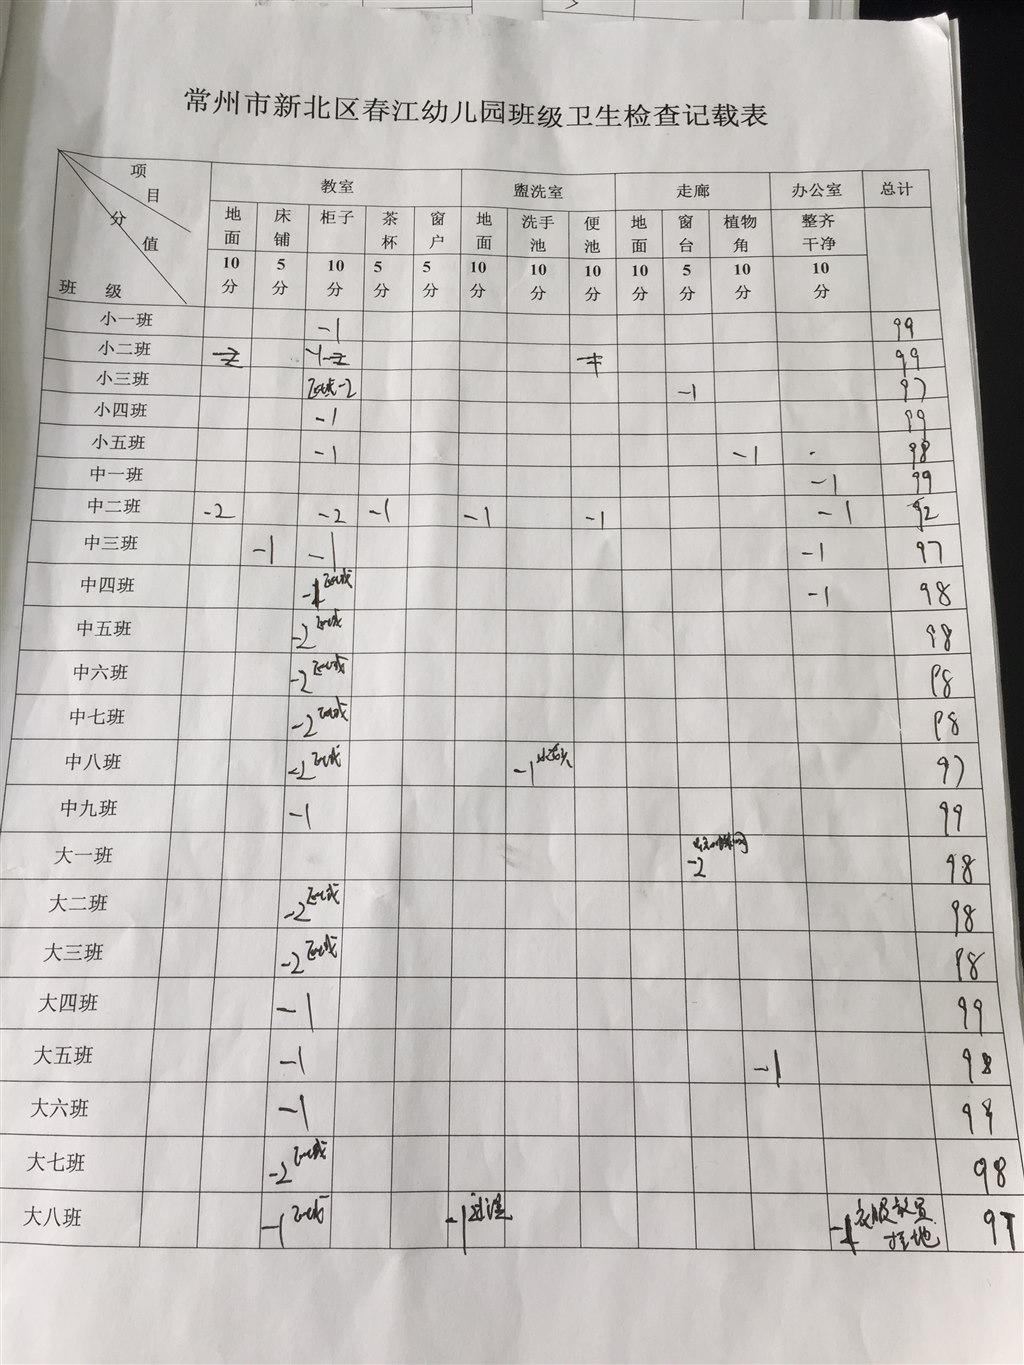 常州市新北区春江幼儿园班级卫生检查记载表
项目 分值 班级 教室 盥洗室 走廊 办公室 总计
地面 床铺 柜子 茶杯 窗户 地面 洗手池 便池 地面 窗台 植物角 整齐干净
10分 5分 10分 5分 5分 10分 10分 10分 10分 5分 10分 10分
小一班 -1 99
小二班 99
小三班 -2 -1 97
小四班 -1 99
小五班 -1 -1 98
中一班 -1 99
中二班 -2 -2 -1 -1 -1 -1 92
中三班 -1 -1 -1 97
中四班 -1 -1 98
中五班 -2 98
中六班 -2 98
中七班 -2 98
中八班 -2 -1 97
中九班 -1 99
大一班 -2 98
大二班 -2 98
大三班 -2 98
大四班 -1 99
大五班 -1 -1 98
大六班 -1 99
大七班 -2 98
大八班 -1 -1 过湿 -1 衣服放置 97